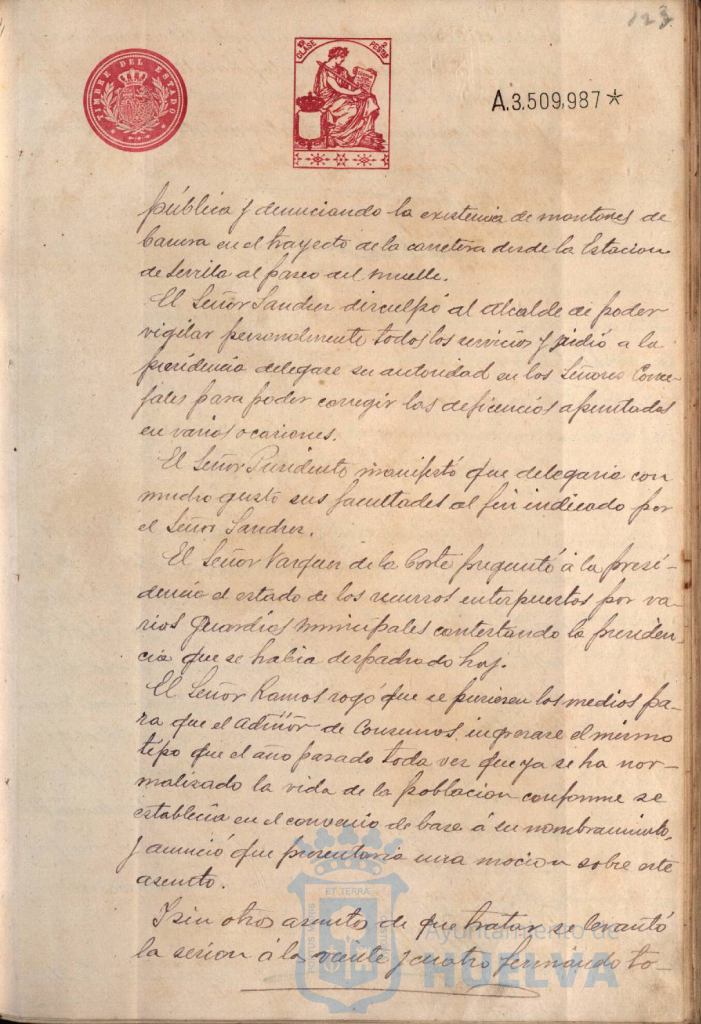 123
TIMBRE DEL ESTADO
11ª CLASE
2 PESETAS
A.3.509,987*
pública y denunciando la existencia de montones de
basura en el trayecto de la carretera desde la Estacion
de Sevilla al paseo del Muelle.
El Señor Sanchez disculpó al Alcalde de poder
vigilar personalmente todos los servicios y pidió a la
presidencia delegase su autoridad en los Señores Conce-
jales para poder corregir las deficencias apuntadas
en varias ocasiones.
El Señor Presidente manifestó que delegaria con
mucho gusto sus facultades al fin indicado por
el Señor Sanchez.
El Señor Vazquez de la Corte preguntó á la presi-
dencia el estado de los recursos interpuestos por va-
rios Guardias municipales contestando la presiden-
cia que se habia despachado hoy.
El Señor Ramos rogó que se pusiesen los medios pa-
ra que el Admõr de Consumos, ingresase el mismo
tipo que el año pasado toda vez que ya se ha nor-
malizado la vida de la poblacion conforme se
establecia en el convenio de base á su nombramiento,
y anunció que presentaria una mocion sobre este
asunto.
Y sin otros asuntos de que tratar se levantó
la sesion á la veinte y cuatro fernando to-
ET TERRA
Ayuntamiento de
HUELVA